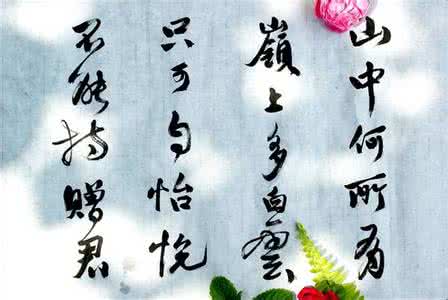 山中何所有
嶺上多白雲
只可自怡悅
不能持贈君